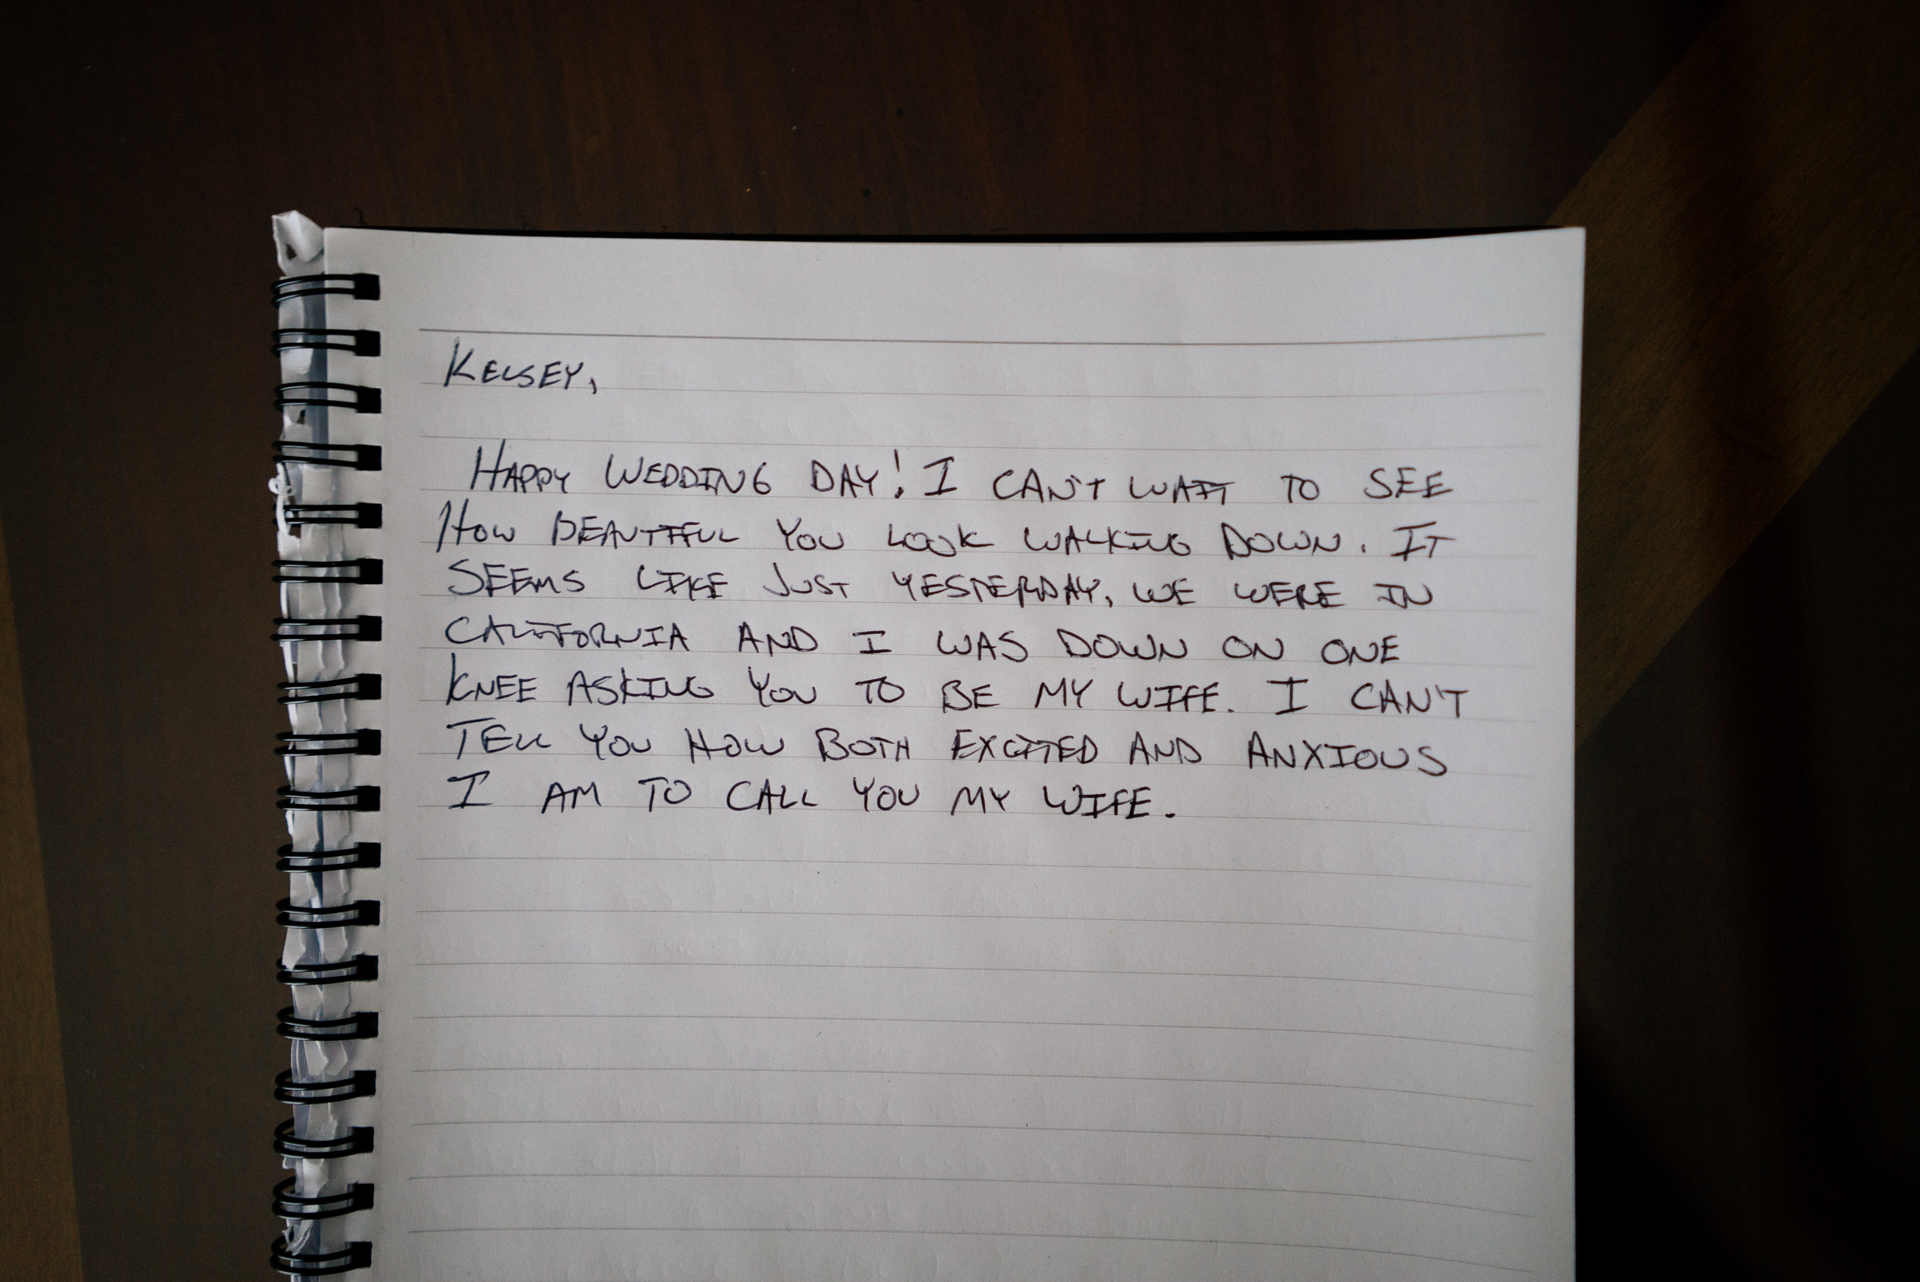 KELSEY,
HAPPY WEDDING DAY! I CAN'T WAIT TO SEE
HOW BEAUTIFUL YOU LOOK WALKING DOWN. IT
SEEMS LIKE JUST YESTERDAY, WE WERE IN
CALIFORNIA AND I WAS DOWN ON ONE
KNEE ASKING YOU TO BE MY WIFE. I CAN'T
TELL YOU HOW BOTH EXCITED AND ANXIOUS
I AM TO CALL YOU MY WIFE.